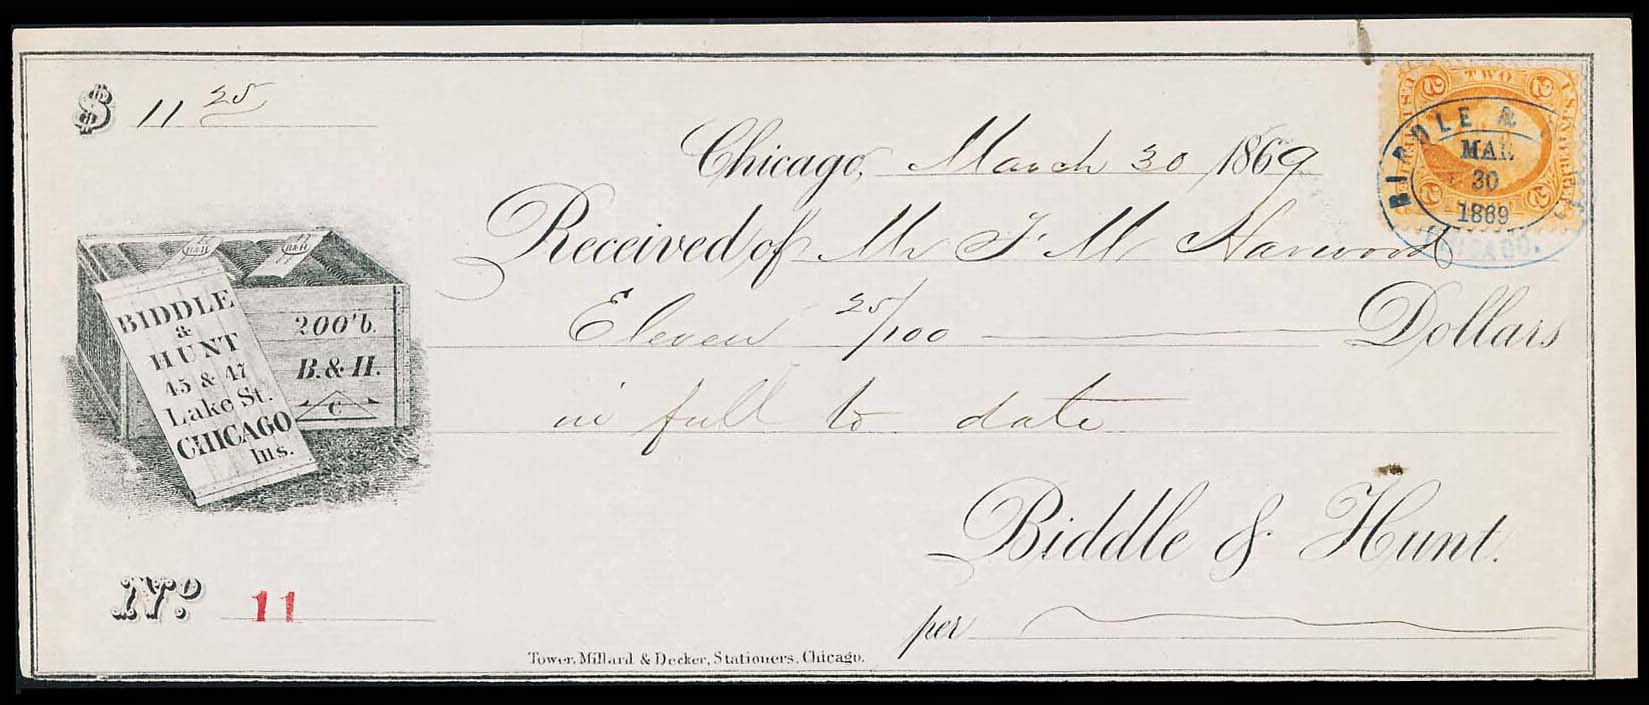 $ 11 25
Chicago, March 30 1869
Received of Mr F. M Harwood
Eleven 25/100 Dollars
in full to date
Biddle & Hunt.
per
No. 11
Tower, Millard & Decker, Stationers, Chicago.
B&H
B&H
BIDDLE
&
HUNT
45 & 47
Lake St.
CHICAGO
Ills.
200 lb.
B.&H.
C
TWO
2 2
U.S. INTER. REV.
2 2
BIDDLE &
MAR
30
1869
CHICAGO.